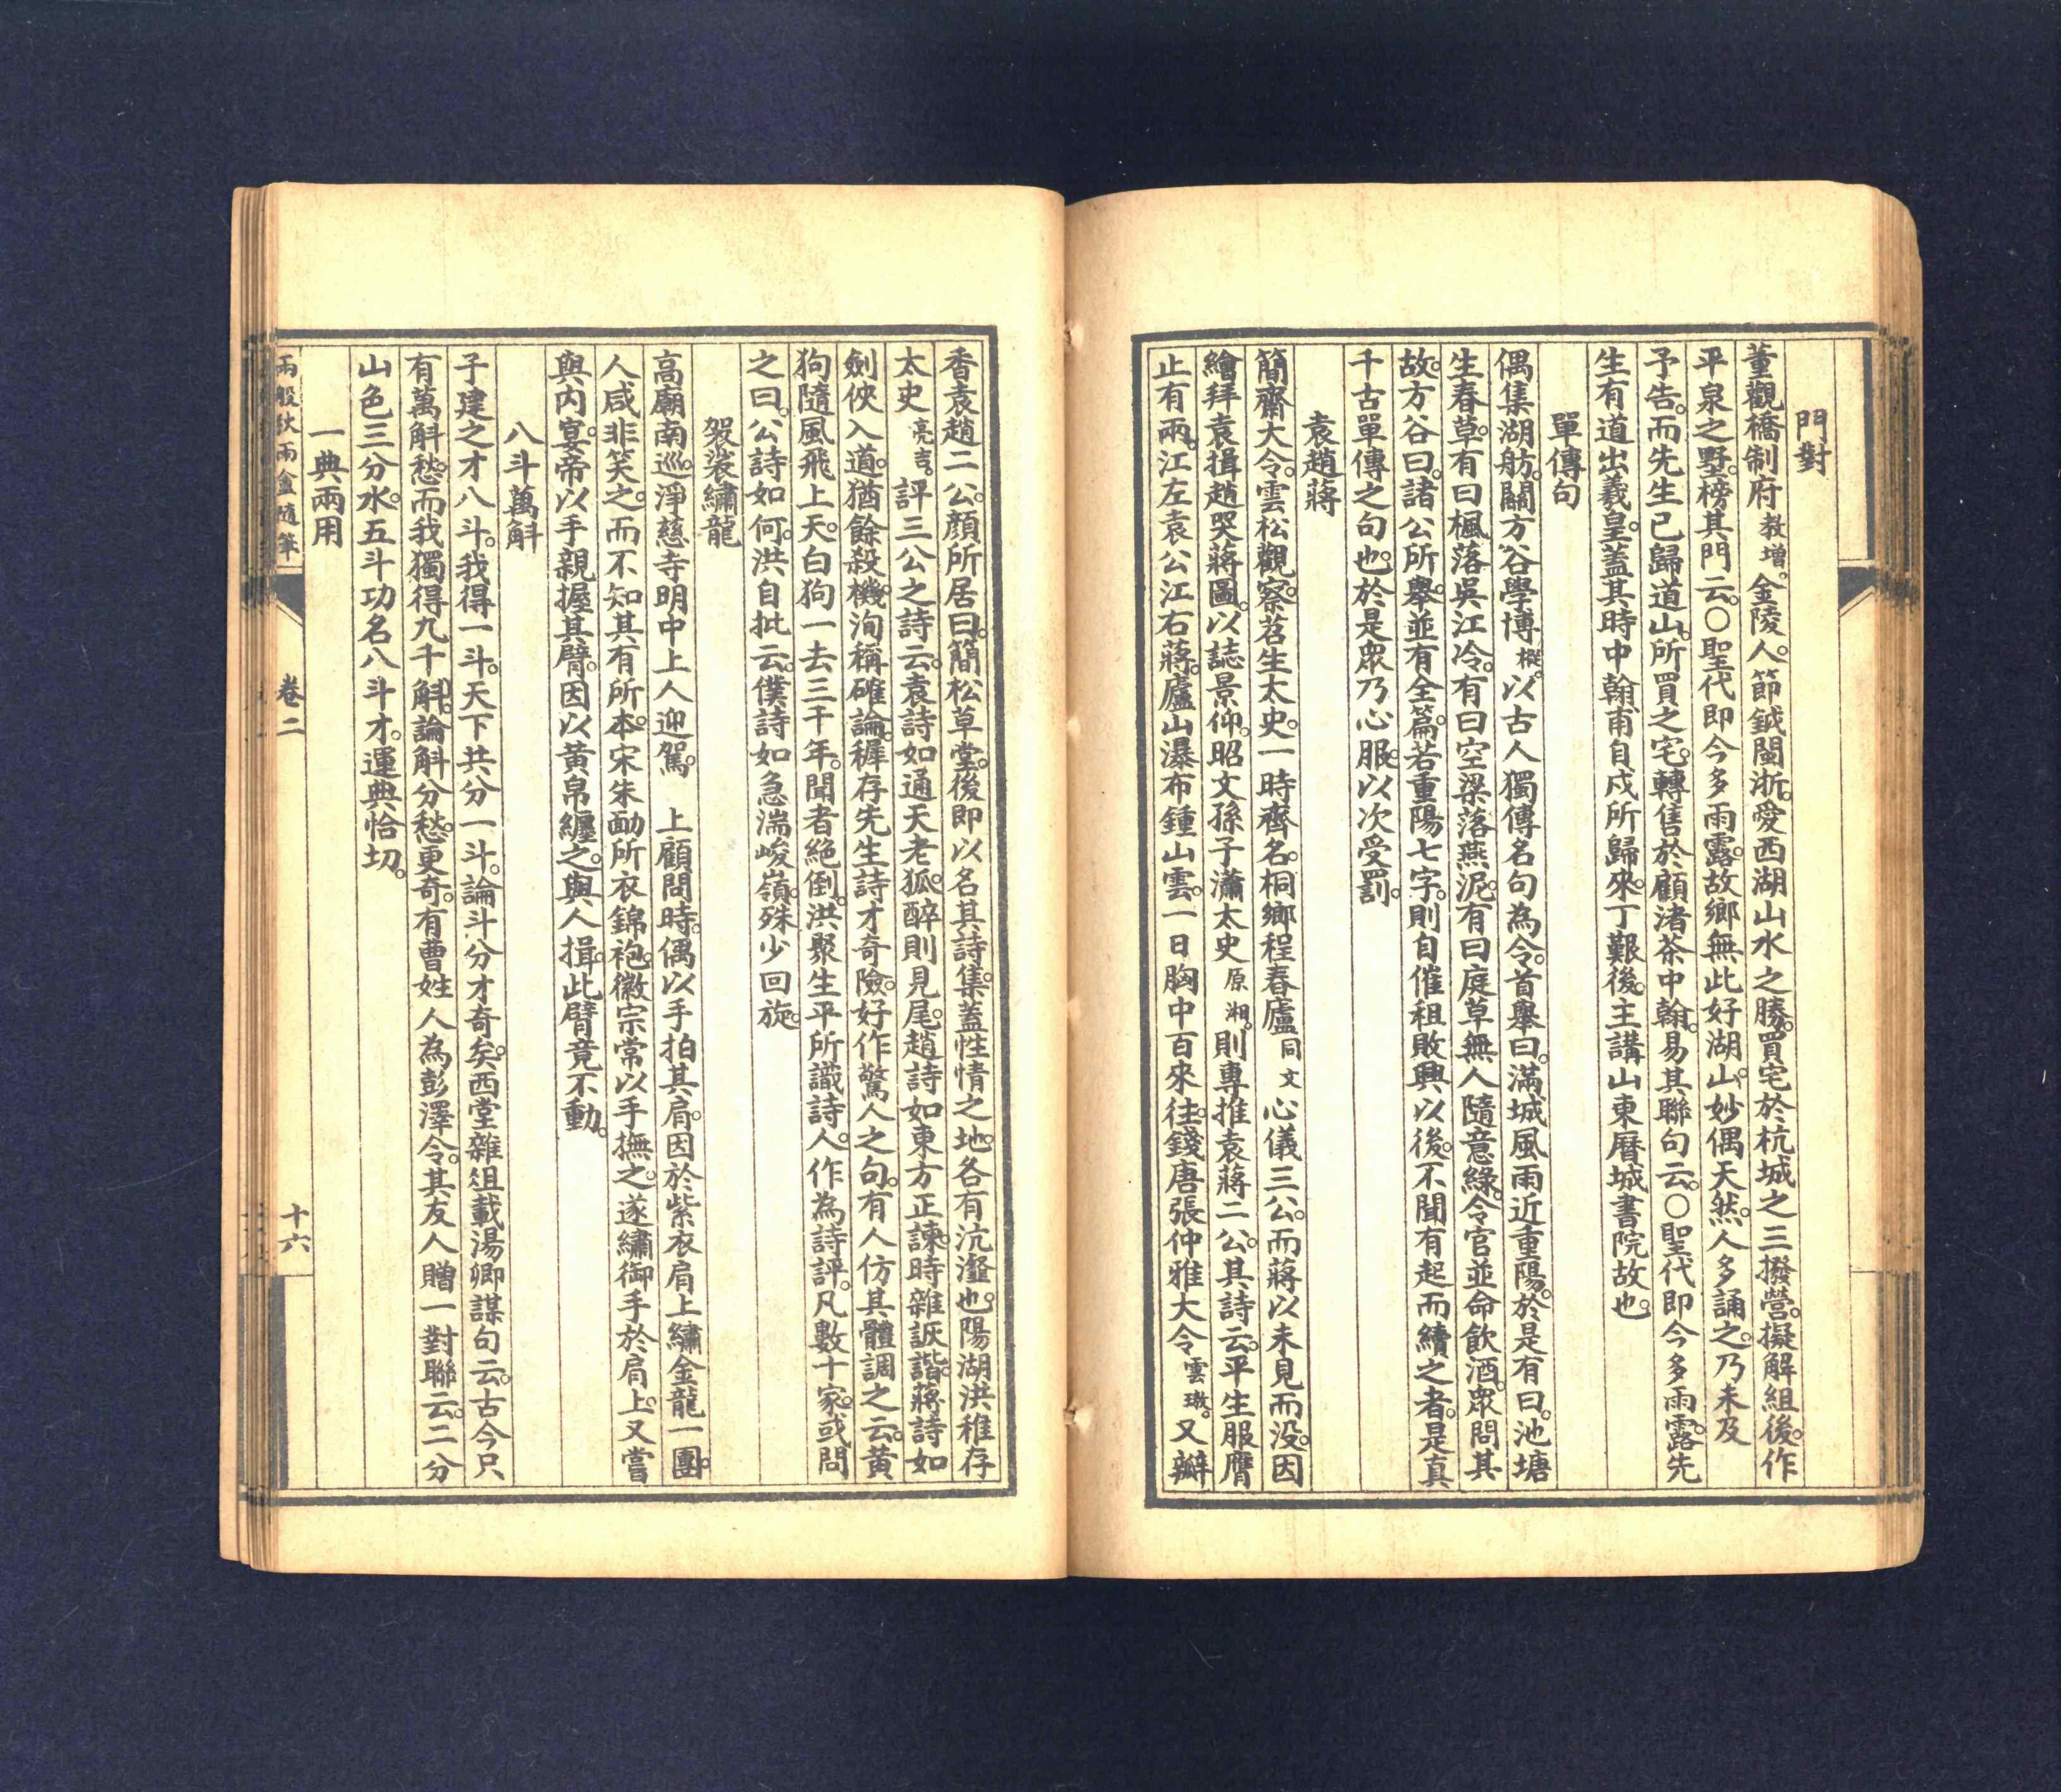 門對
董觀橋制府教增。金陵人。節鉞閩浙。愛西湖山水之勝。買宅於杭城之三撥營。擬解組後。作
平泉之墅。榜其門云。○聖代即今多雨露。故鄉無此好湖山。妙偶天然。人多誦之。乃未及
予告。而先生已歸道山。所買之宅。轉售於顧渚茶中翰。易其聯句云。○聖代即今多雨露。先
生有道出羲皇。蓋其時中翰甫自戍所歸來。丁艱後。主講山東曆城書院故也。
單傳句
偶集湖舫。關方谷學博樅。以古人獨傳名句為令。首舉曰。滿城風雨近重陽。於是有曰。池塘
生春草。有曰楓落吳江冷。有曰空梁落燕泥。有曰庭草無人隨意綠。令官並命飲酒。眾問其
故。方谷曰。諸公所舉。並有全篇。若重陽七字。則自催租敗興以後。不聞有起而續之者。是真
千古單傳之句也。於是眾乃心服。以次受罰。
袁趙蔣
簡齋大令。雲松觀察。苕生太史。一時齊名。桐鄉程春廬同文心儀三公。而蔣以未見而没。因
繪拜袁揖趙哭蔣圖。以誌景仰。昭文孫子瀟太史原湘。則專推袁蔣二公。其詩云。平生服膺
止有兩。江左袁公江右蔣。廬山瀑布鍾山雲。一日胸中百來往。錢唐張仲雅大令雲璈。又瓣
香袁趙二公。顏所居曰。簡松草堂。後即以名其詩集。蓋性情之地。各有沆瀣也。陽湖洪稚存
太史亮吉。評三公之詩云。袁詩如通天老狐。醉則見尾。趙詩如東方正諫。時雜詼諧。蔣詩如
劍俠入道。猶餘殺機。洵稱確論。穉存先生詩才奇險。好作驚人之句。有人仿其體調之云。黃
狗隨風飛上天。白狗一去三千年。聞者絕倒。洪聚生平所識詩人。作為詩評。凡數十家。或問
之曰。公詩如何。洪自批云。僕詩如急湍峻嶺。殊少回旋。
袈裟繡龍
高廟南巡。淨慈寺明中上人迎駕。　上顧問時。偶以手拍其肩。因於紫衣肩上繡金龍一團。
人咸非笑之。而不知其有所本。宋朱勔所衣錦袍。徽宗常以手撫之。遂繡御手於肩上。又嘗
與內宴。帝以手親握其臂。因以黃帛纏之。與人揖。此臂竟不動。
八斗萬斛
子建之才八斗。我得一斗。天下共分一斗。論斗分才奇矣。西堂雜俎載湯卿謀句云。古今只
有萬斛愁。而我獨得九千斛。論斛分愁。更奇。有曹姓人為彭澤令。其友人贈一對聯云。二分
山色三分水。五斗功名八斗才。運典恰切。
一典兩用
兩般秋雨盦隨筆　卷二　十六